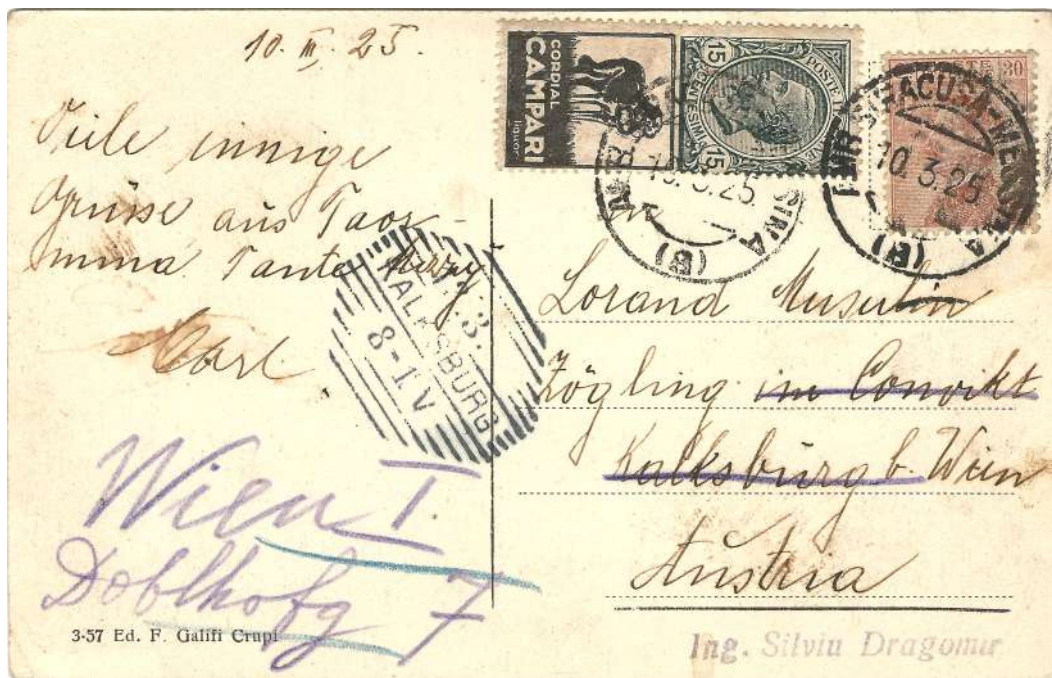 10. III. 25.
Viele innige
Grüsse aus Taor-
mina Tante Mizzy
Carl
CORDIAL
CAMPARI
liquor
POSTE
15 CENTESIMI 15
POSTE
30
10.3.25
(B)
AMB. SIRACUSA-MESSINA
10.3.25
(B)
3.
KALKSBURG
8-1 V
An
Lorand Musulin
Zögling im Convikt
Kalksburg b. Wien
Austria
Wien I
Doblhofg 7
3-57 Ed. F. Galifi Crupi
Ing. Silviu Dragomir